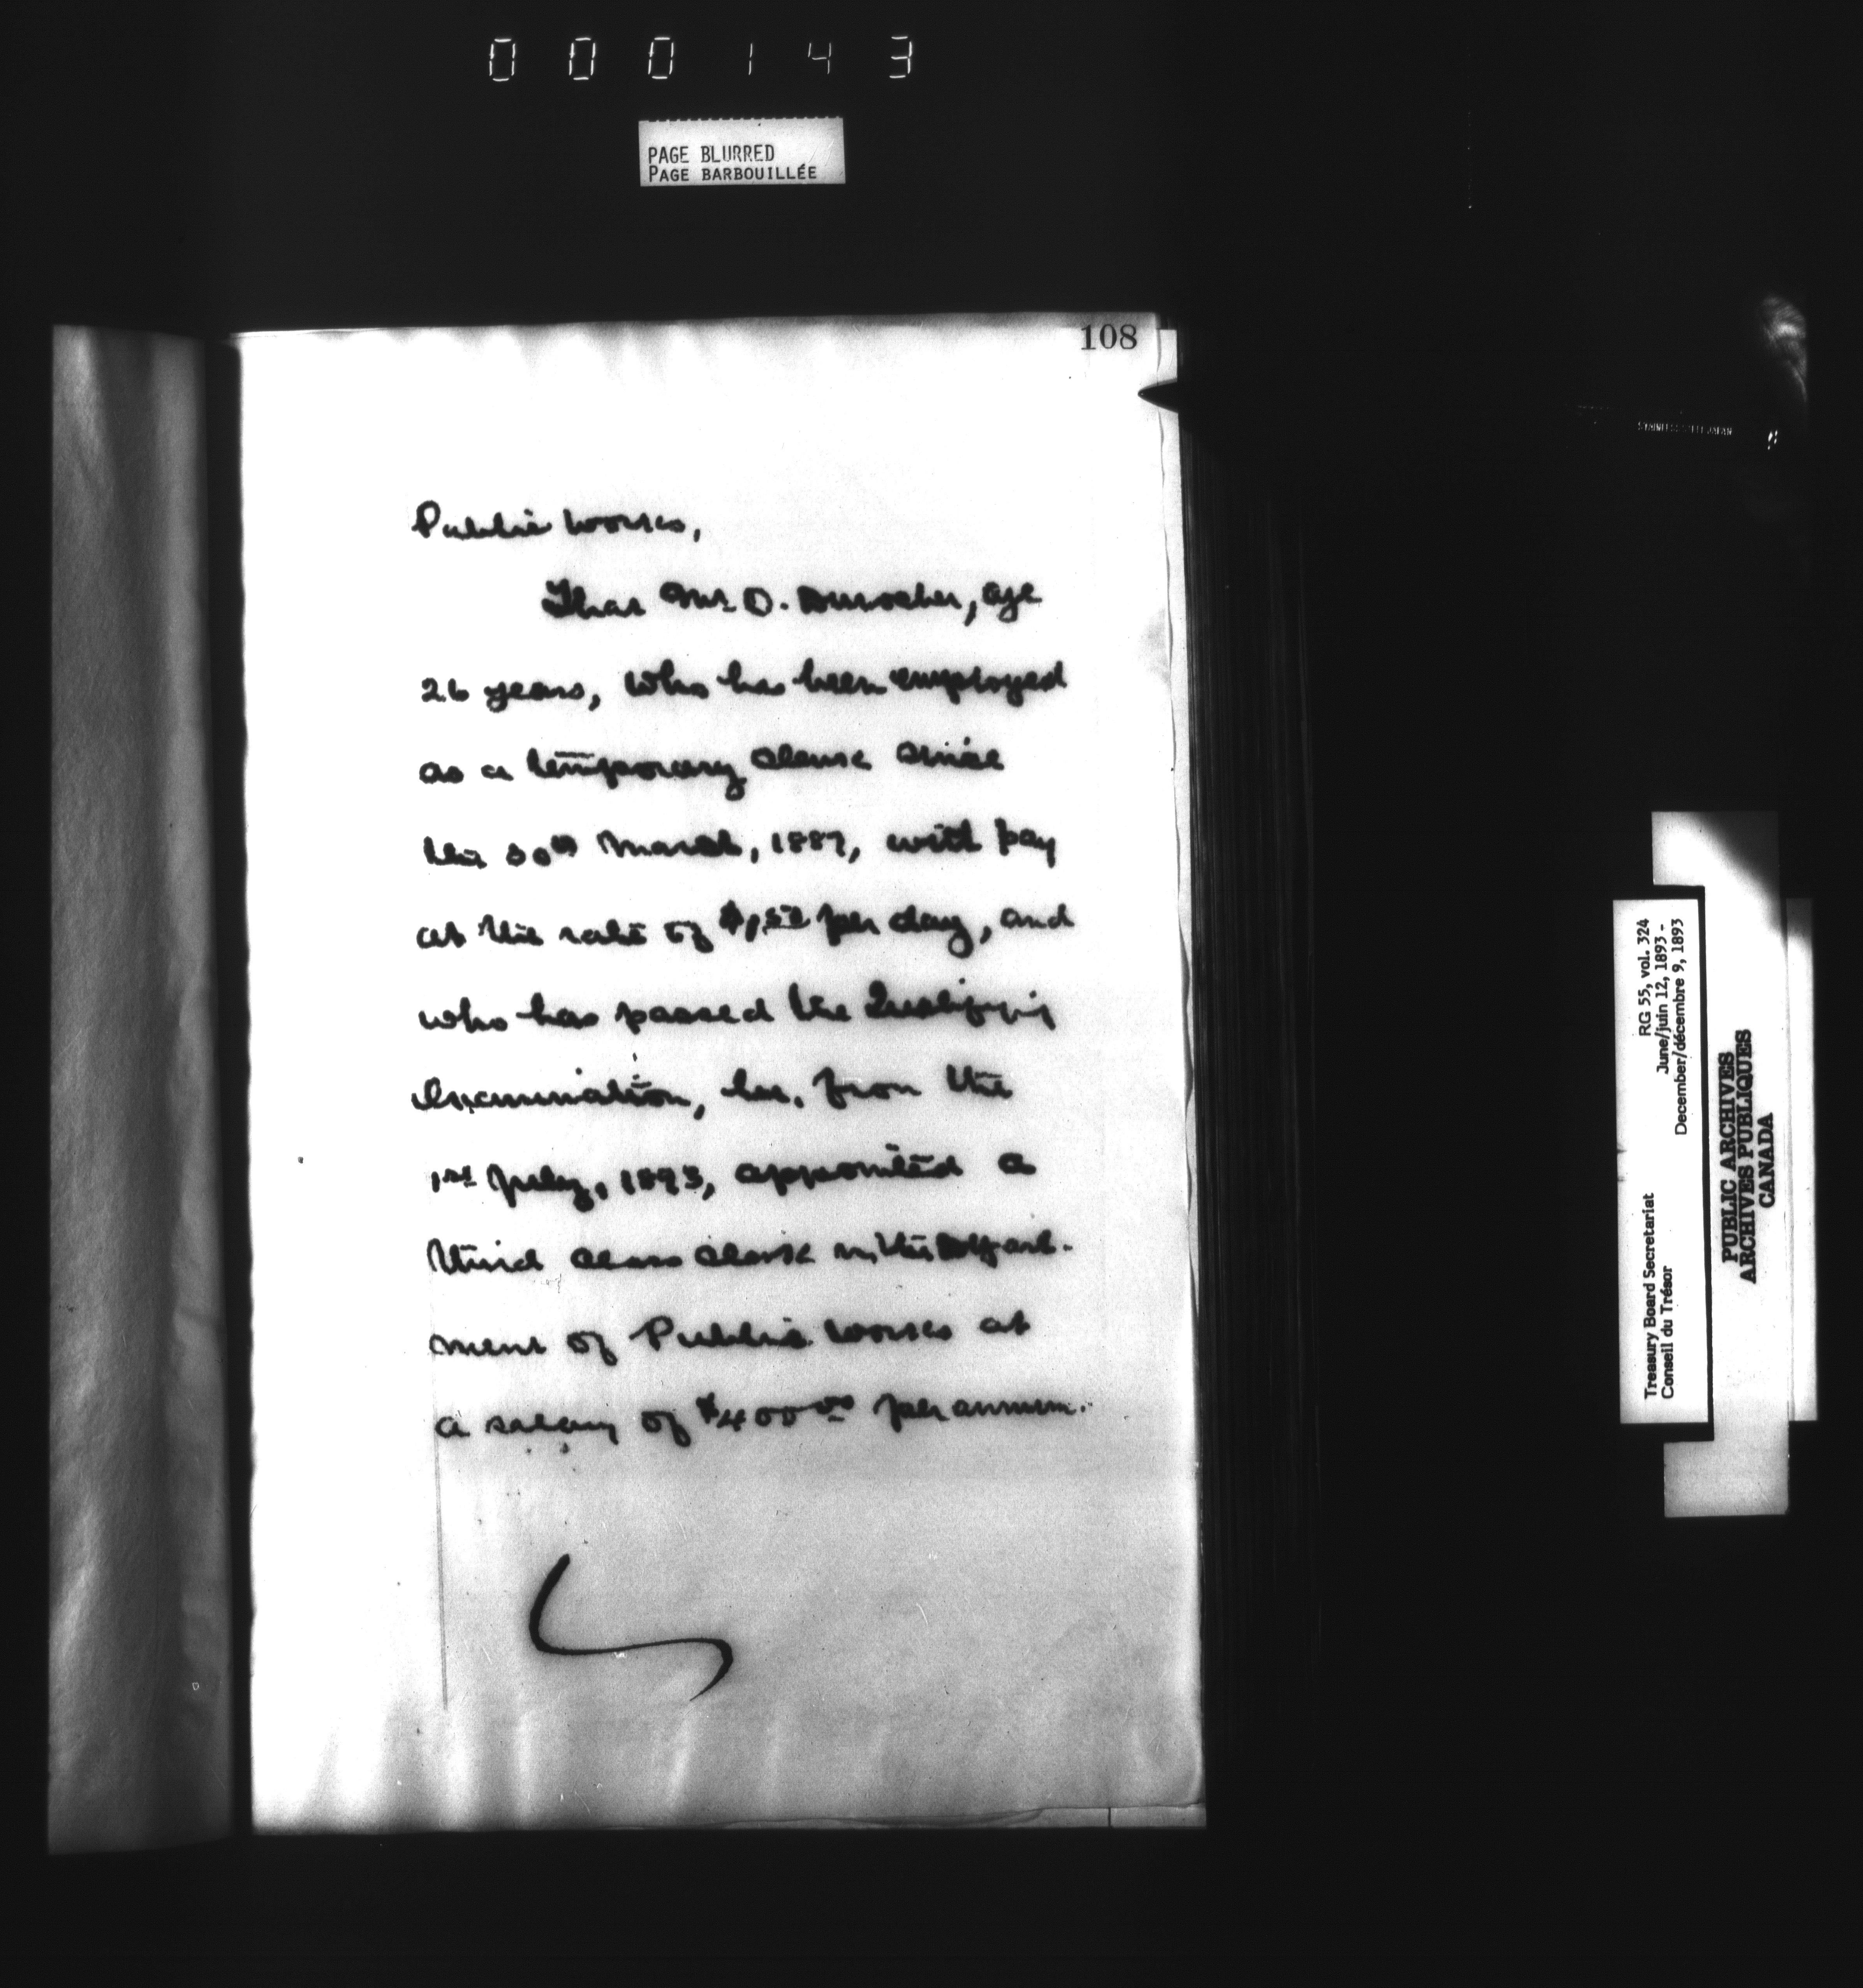 000143
PAGE BLURRED
PAGE BARBOUILLÉE
108
Public Works,
That Mr O. Durocher, age
26 years, who has been employed
as a temporary clerk since
the 30th March, 1887, with pay
at the rate of $1,50 per day, and
who has passed the Qualifying
Examination, be, from the
1st July, 1893, appointed a
third class clerk in the Depart-
ment of Public Works at
a salary of $400 00 per annum.
STAINLESS STEEL JAPAN
RG 55, vol. 324
June/juin 12, 1893 -
December/décembre 9, 1893
Treasury Board Secretariat
Conseil du Trésor
PUBLIC ARCHIVES
ARCHIVES PUBLIQUES
CANADA